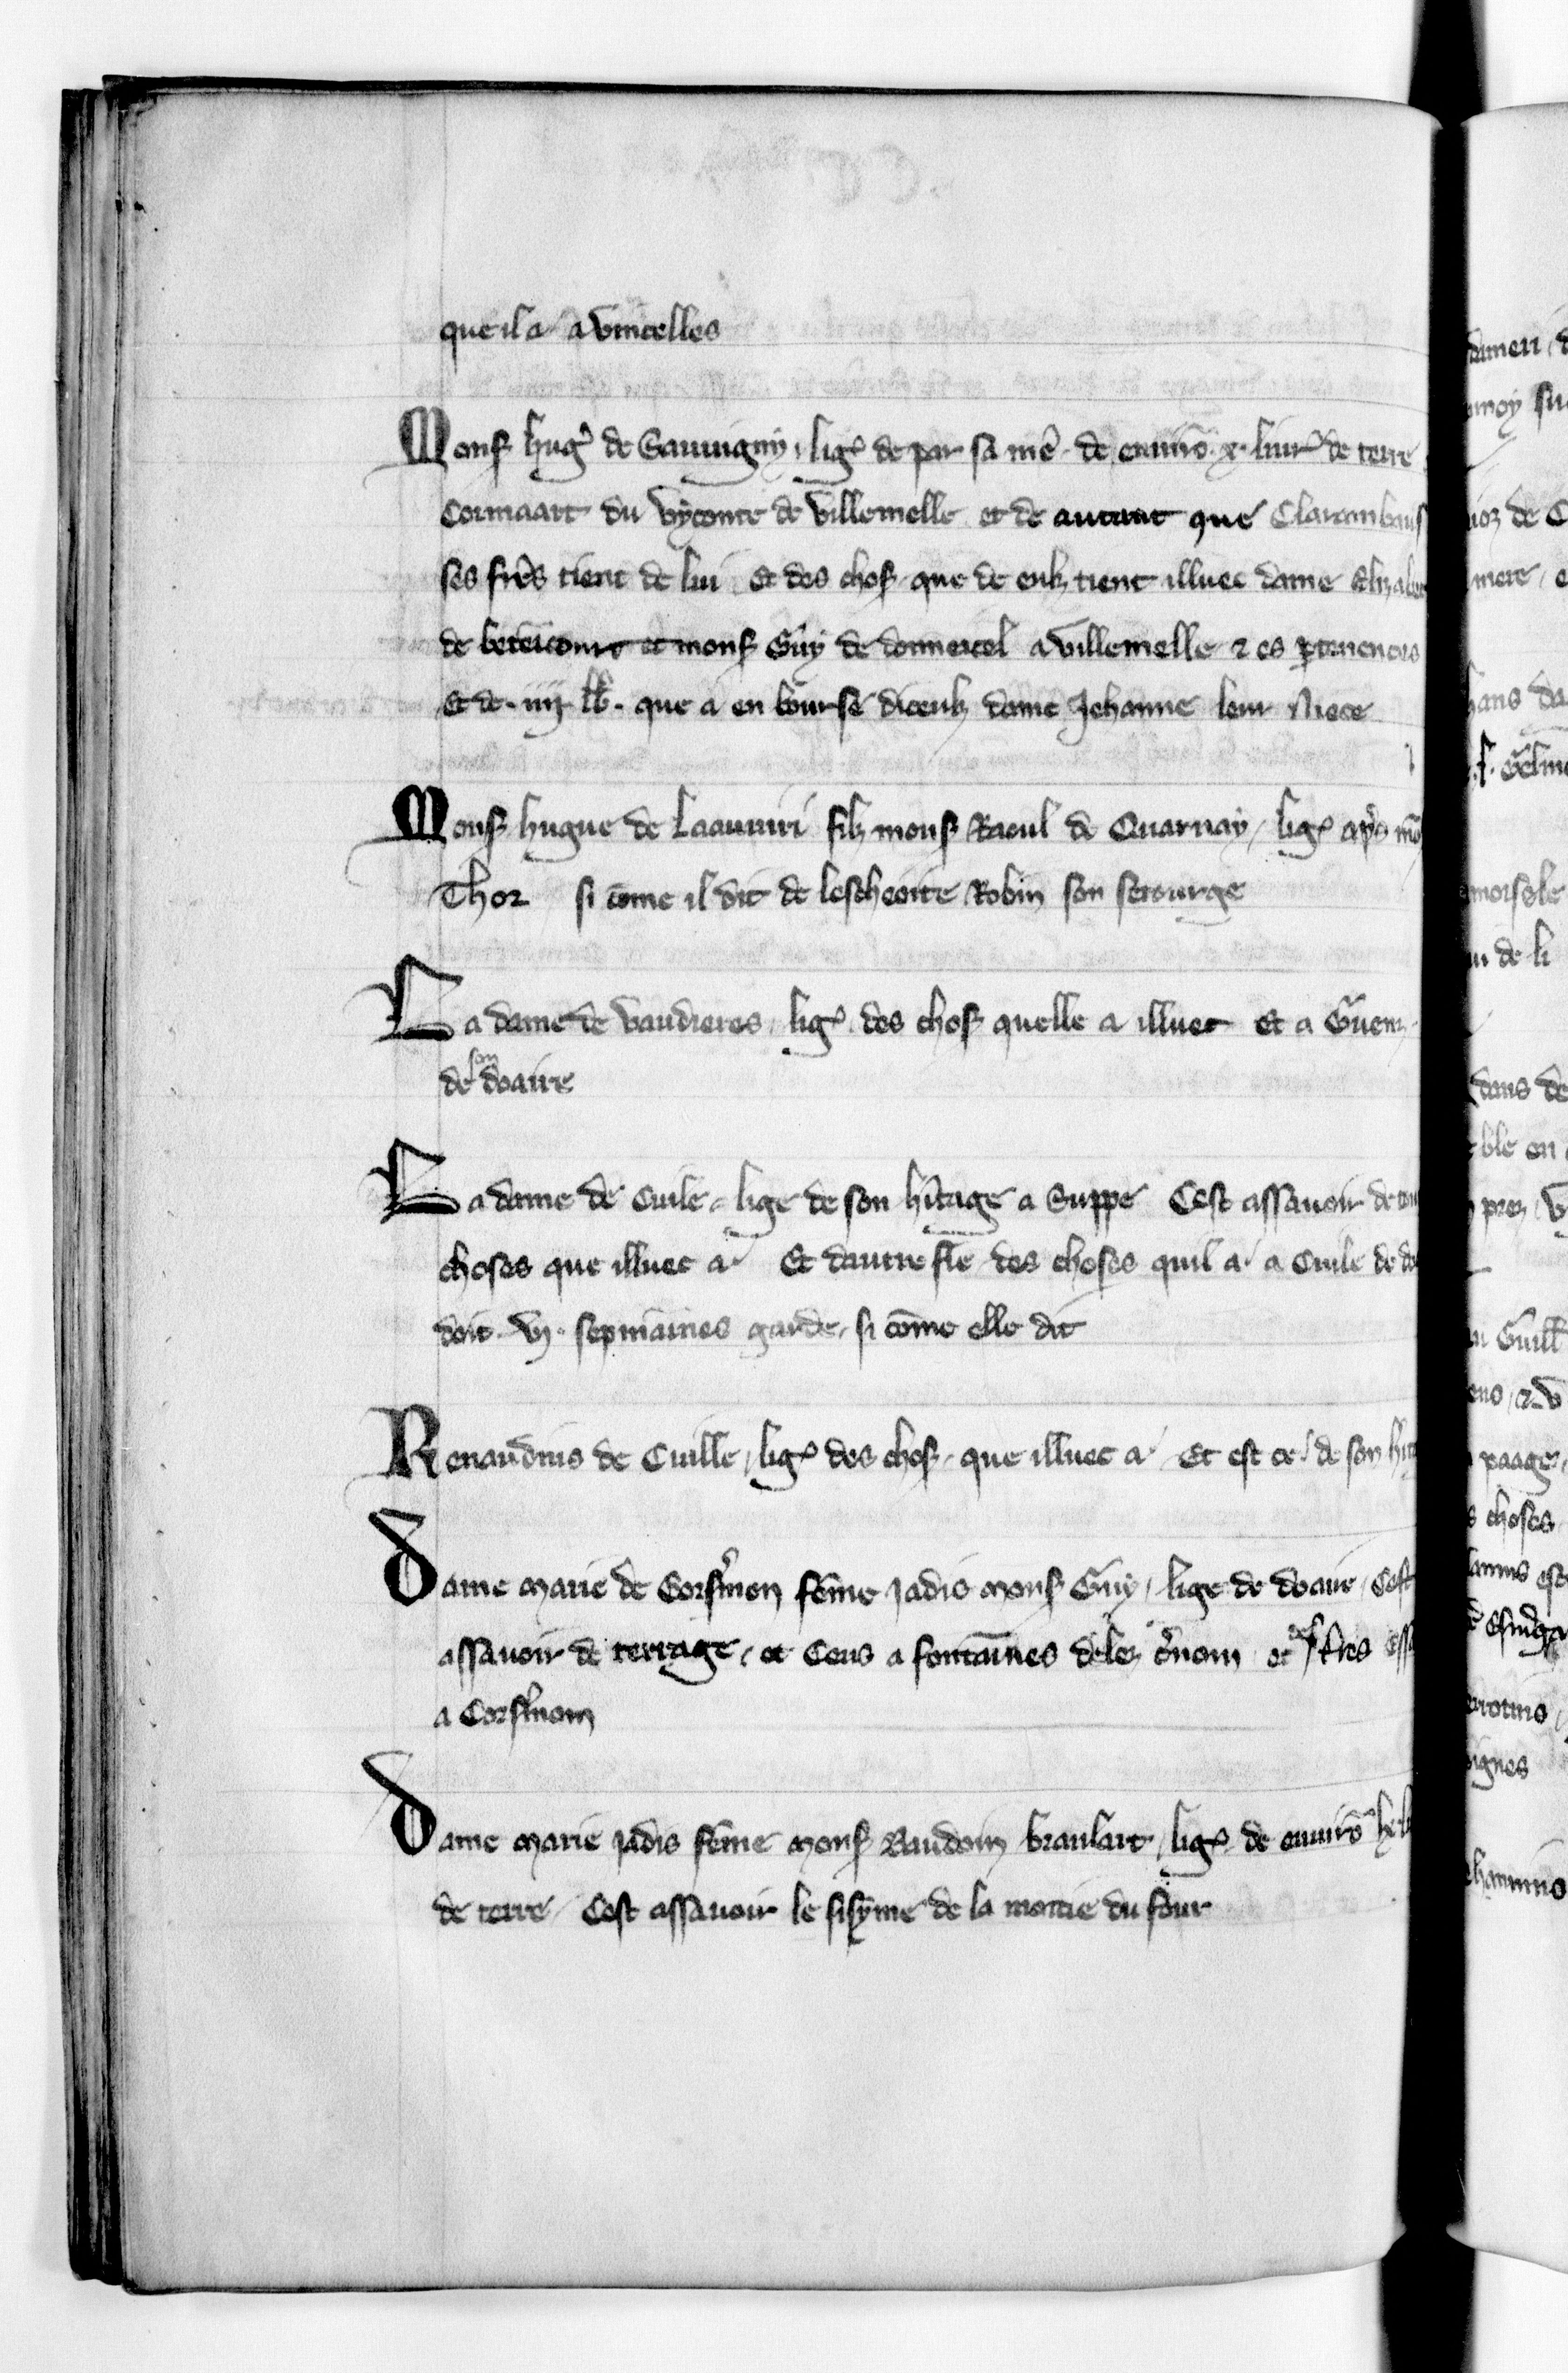 que il a a vincelles
Mons hug' de Sauuigny lig' de par sa me de enuiro .x. liur' de terre
Cormaart du vyconte de villemelle et de autant que Clarambaus
ses fres tient de lui Et des chos que de eulz tient illuec dame
de betencourt et mons Guy de donnercel a villemelle & es ptenences
Et de .iiij. lb. que a en bourse diceulz dame Jehanne leur Niece
Mons hugue de Laauuiri filz mons Raoul de Quarnay lig' aps
Thor si come il dit de leschoite Robin son serourge
La dame de vaudieres lig' des chos quelle a illuec Et a Guenz
de son doaire
La dame de Cuile lige de son hitage a Suppe Cest assauoir de
choses que illuec a Et dautre fie des choses quil a a Cuile de
doit .vj. sepmaines garde si come elle dit
Renaudins de Cuille lig' des chos que illuec a Et est ce de son
Dame marie de Corf'mon feme jadis mons Guy lige de doaire Cest
assauoir de terrage et Cens a fontaines delez et des
a Corf'mom
Dame marie jadis feme mons Baudoin braulart lig' de enuiro
de terre Cest assauoir le sisyme de la moitie du four